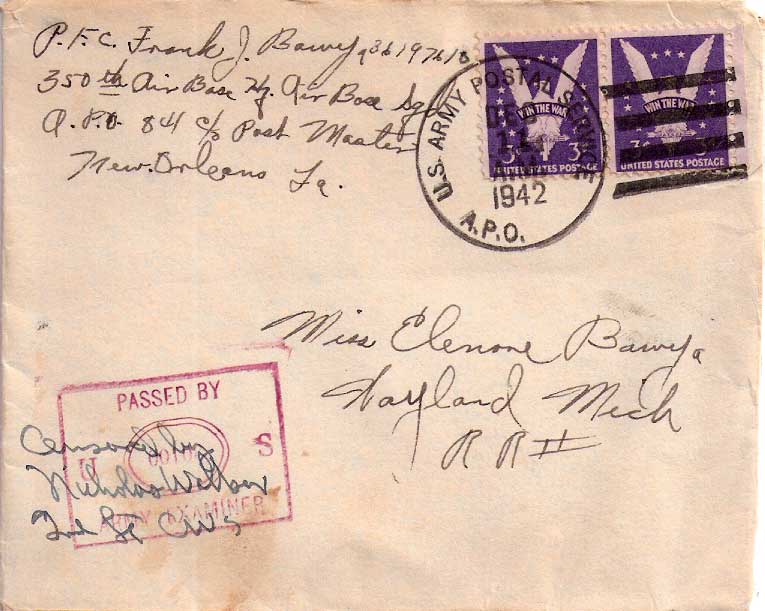 P.F.C. Frank J. Bawya
350th Air Base Hq. Air Base Sqd
A.P.O. 841 c/o Post Master
New Orleans La.
U.S. ARMY POSTAL SERVICE
1942
A.P.O.
WIN THE WAR
3¢ 3¢
UNITED STATES POSTAGE
WIN THE WAR
3¢
UNITED STATES POSTAGE
Miss Elenore Bawya
Wayland Mich
R R II
PASSED BY
U S
ARMY EXAMINER
Censored by
Nicholas
2nd Lt CWS